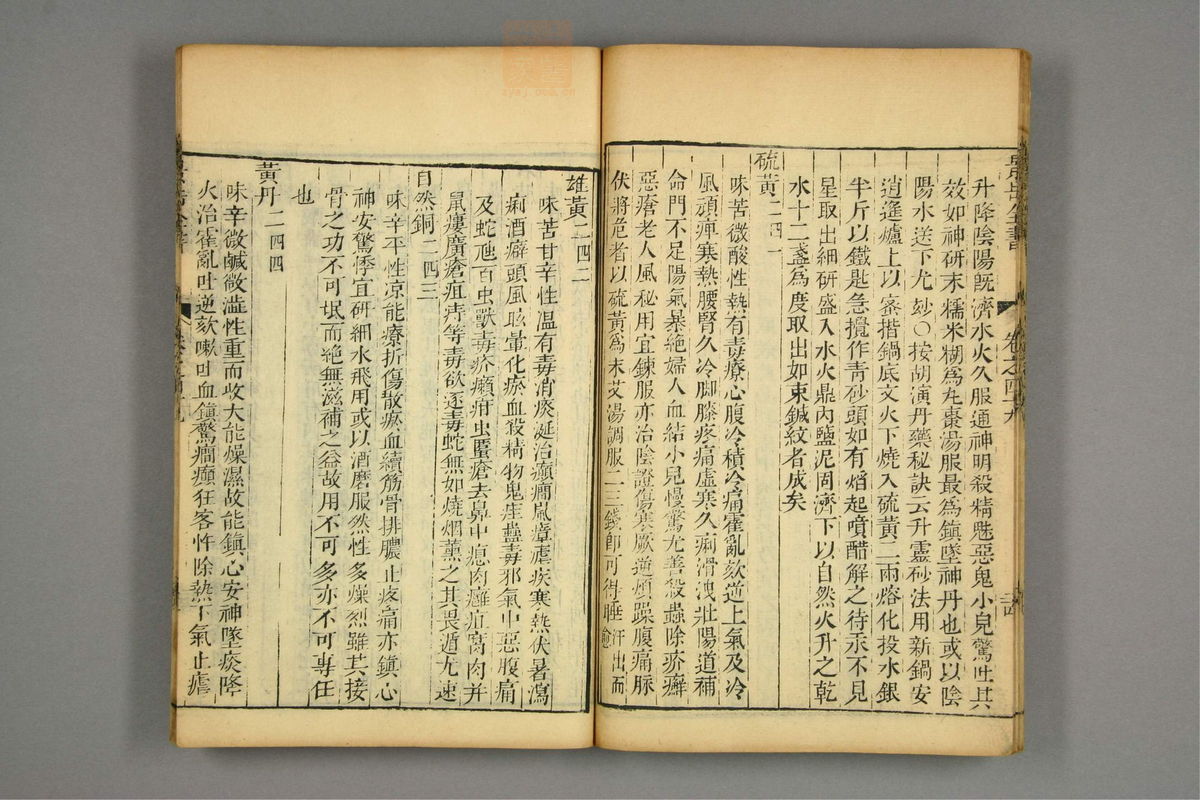 升降陰陽既濟水火久服通神明殺精魅惡鬼小兒驚吐其
效如神研末糯米糊爲丸棗湯服最爲鎮墜神丹也或以陰
陽水送下尤妙○按胡演丹藥秘訣云升靈砂法用新鍋安
逍遙爐上以蜜揩鍋底文火下燒入硫黃二兩熔化投水銀
半斤以鐵匙急攪作青砂頭如有熖起噴醋解之待汞不見
星取出細研盛入水火鼎內鹽泥固濟下以自然火升之乾
水十二盞爲度取出如束鍼紋者成矣
硫黃二四一
味苦微酸性熱有毒療心腹冷積冷痛霍亂欬逆上氣及冷
風頑痺寒熱腰腎久冷脚膝疼痛虛寒久痢滑洩壯陽道補
命門不足陽氣暴絶婦人血結小兒慢驚尤善殺蟲除疥癬
惡瘡老人風秘用宜鍊服亦治陰證傷寒厥逆煩躁腹痛脈
伏將危者以硫黃爲末艾湯調服二三錢卽可得睡汗出而愈
卷之四十九
雄黃二四二
味苦甘辛性溫有毒消痰涎治癲癇嵐瘴瘧疾寒熱伏暑瀉
痢酒癖頭風眩暈化瘀血殺精物鬼疰蠱毒邪氣中惡腹痛
及蛇虺百虫獸毒疥癩疳虫䘌瘡去鼻中瘜肉癰疽腐肉并
鼠瘻廣瘡疽痔等毒欲逐毒蛇無如燒烟薰之其畏遁尤速
自然銅二四三
味辛平性凉能療折傷散瘀血續筋骨排膿止疼痛亦鎮心
神安驚悸宜研細水飛用或以酒磨服然性多燥烈雖其接
骨之功不可泯而絶無滋補之益故用不可多亦不可專任
也
黃丹二四四
味辛微鹹微澁性重而收大能燥濕故能鎮心安神墜痰降
火治霍亂吐逆欬嗽吐血鎮驚癇癲狂客忤除熱下氣止瘧